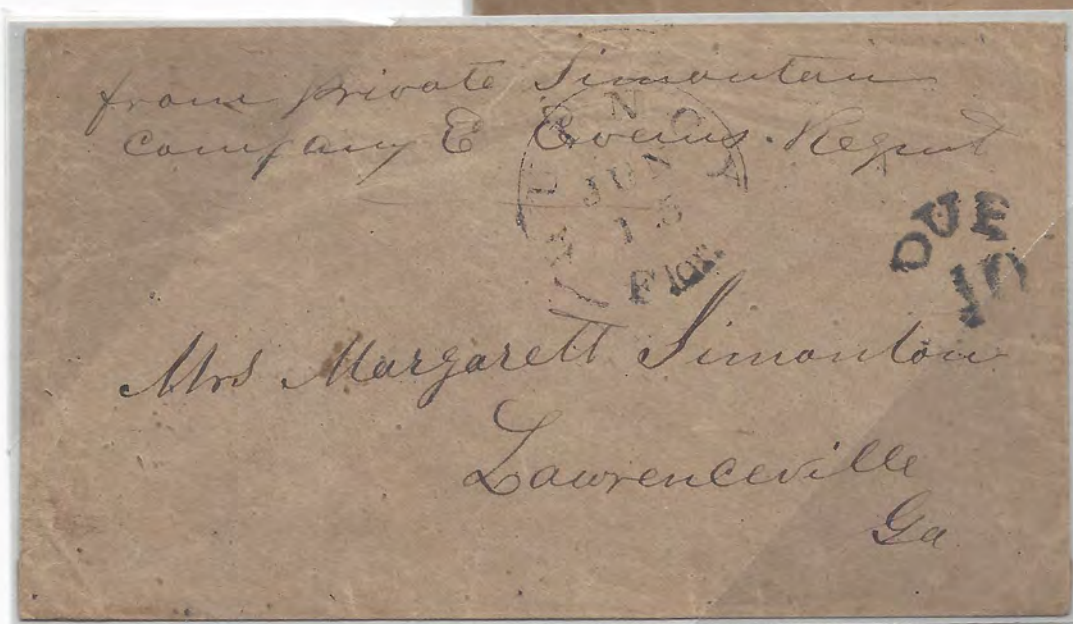 from private Simonton
Company E Evens. Regmt
QUINCY
JUN
15
Flor.
DUE
10
Mrs Margarett Simonton
Lawrenceville
Ga